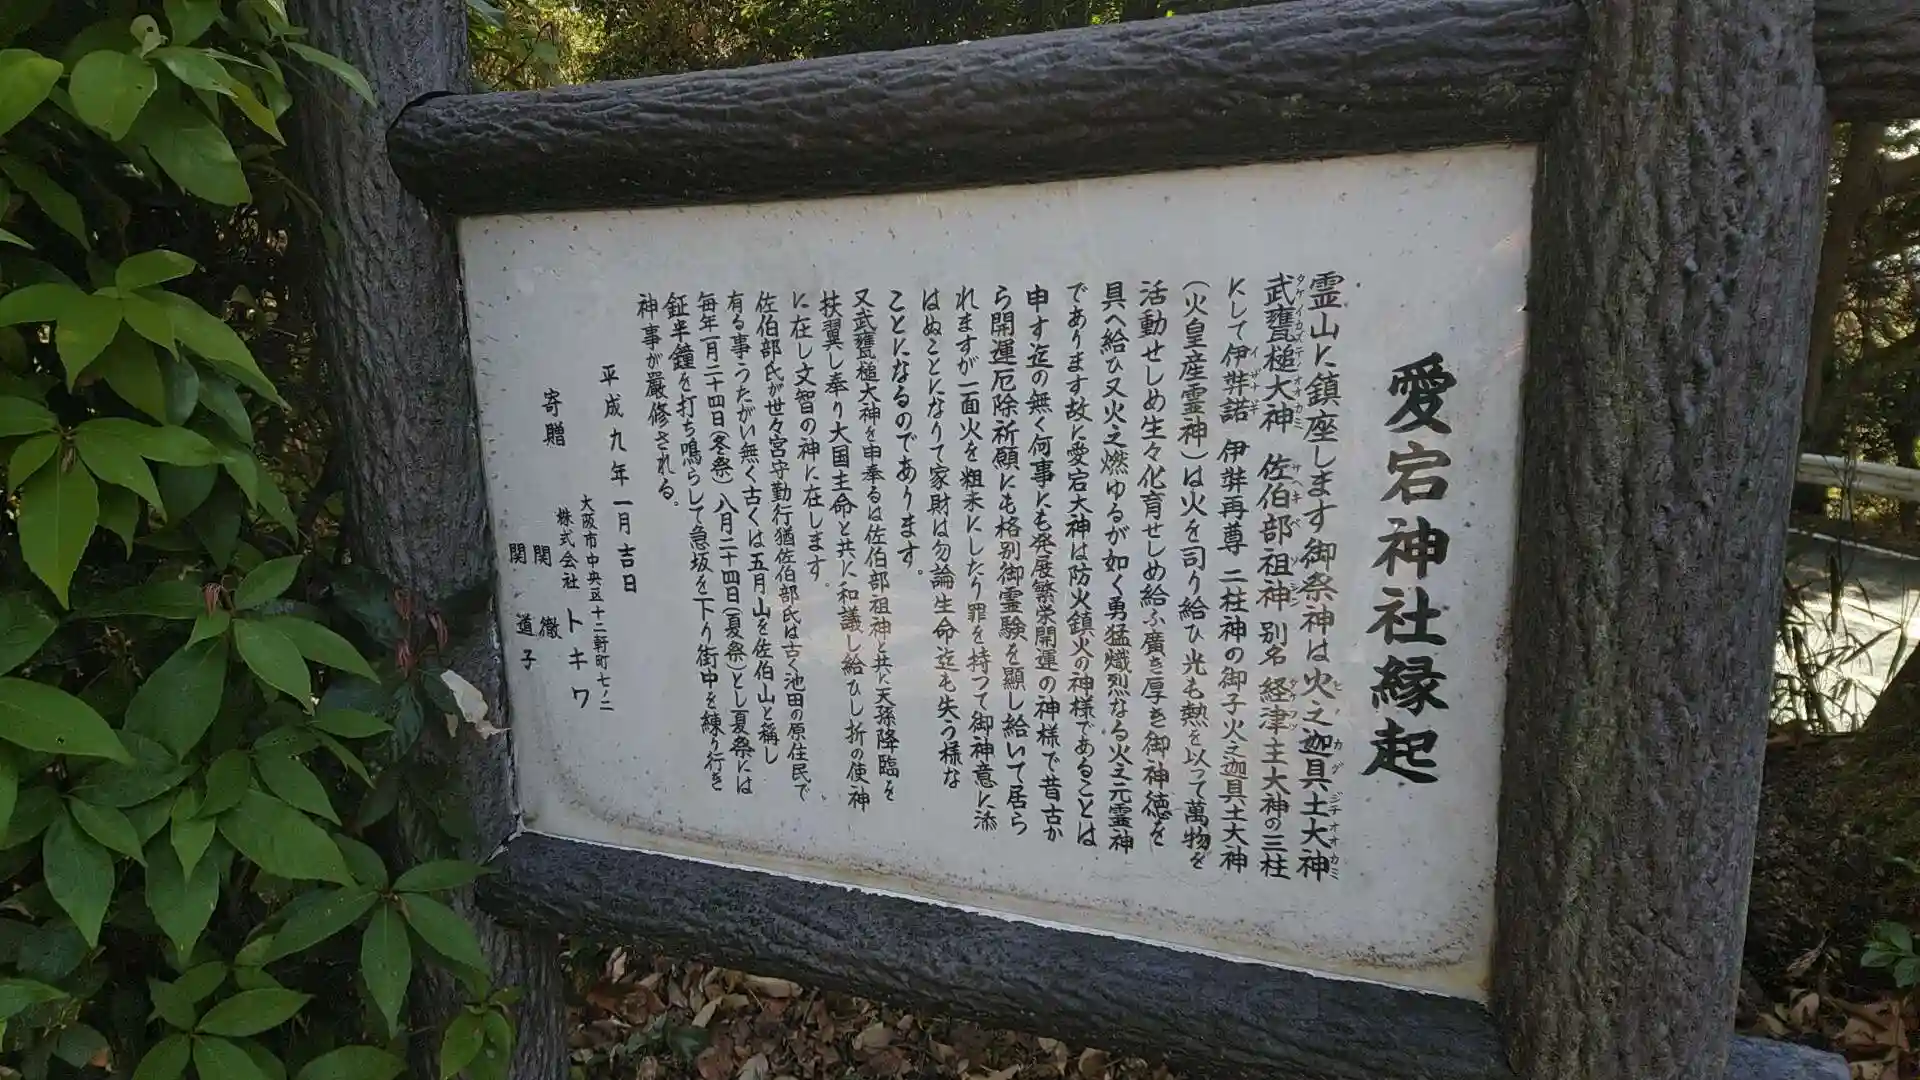 愛宕神社縁起
霊山に鎮座します御祭神は火之迦具土大神
武甕槌大神 佐伯部祖神 別名 経津主大神の三柱
にして伊弉諾 伊弉再尊 二柱神の御子火之迦具土大神
(火皇産霊神)は火を司り給ひ光も熱を以って萬物を
活動せしめ生々化育せしめ給ふ廣き厚き御神徳を
具へ給ひ又火之燃ゆるが如く勇猛熾烈なる火之元霊神
であります故に愛宕大神は防火鎮火の神様であることは
申す迄の無く何事にも発展繁栄開運の神様で昔古か
ら開運厄除祈願にも格別御霊験を顕し給いて居ら
れますが一面火を粗末にしたり罪を持つて御神意に添
はぬことになりて家財は勿論生命迄も失う様な
ことになるのであります。
又武甕槌大神を申奉るは佐伯部祖神と共に天孫降臨を
扶翼し奉り大国主命と共に和議し給ひし折の使神
に在し文智の神に在します。
佐伯部氏が世々宮守勤行猶佐伯部氏は古く池田の原住民で
有る事うたがい無く古くは五月山を佐伯山と稱し
毎年一月二十四日(冬祭)八月二十四日(夏祭)とし夏祭には
鉦半鐘を打ち鳴らして急坂を下り街中を練り行き
神事が嚴修される。
平成九年一月吉日
寄贈
大阪市中央区十二軒町七ノ二
株式会社 トキワ
関 徹
関 道子